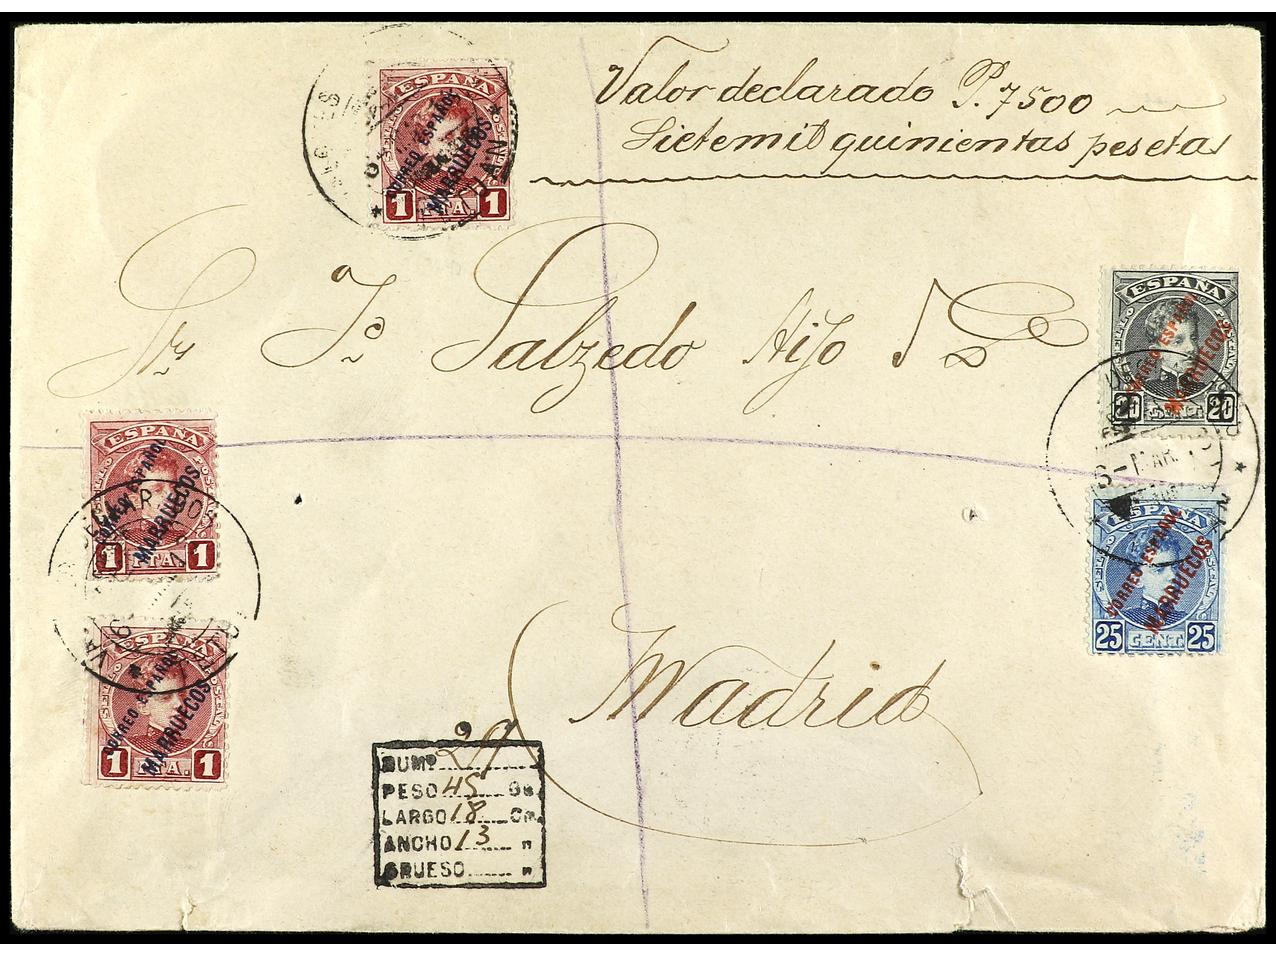 Valor declarado P. 7500
Sietemil quinientas pesetas
ESPAÑA
CORREO ESPAÑOL
MARRUECOS
1 PTA. 1
Sr Fco Salzedo Hijo
ESPAÑA
CORREO ESPAÑOL
MARRUECOS
20 20
ESPAÑA
CORREO ESPAÑOL
MARRUECOS
1 PTA. 1
ESPAÑA
CORREO ESPAÑOL
MARRUECOS
25 CENT. 25
ESPAÑA
CORREO ESPAÑOL
MARRUECOS
1 PTA. 1
Madrid
NUMº 29
PESO 45 Gs.
LARGO 18 Cm.
ANCHO 13 "
GRUESO "